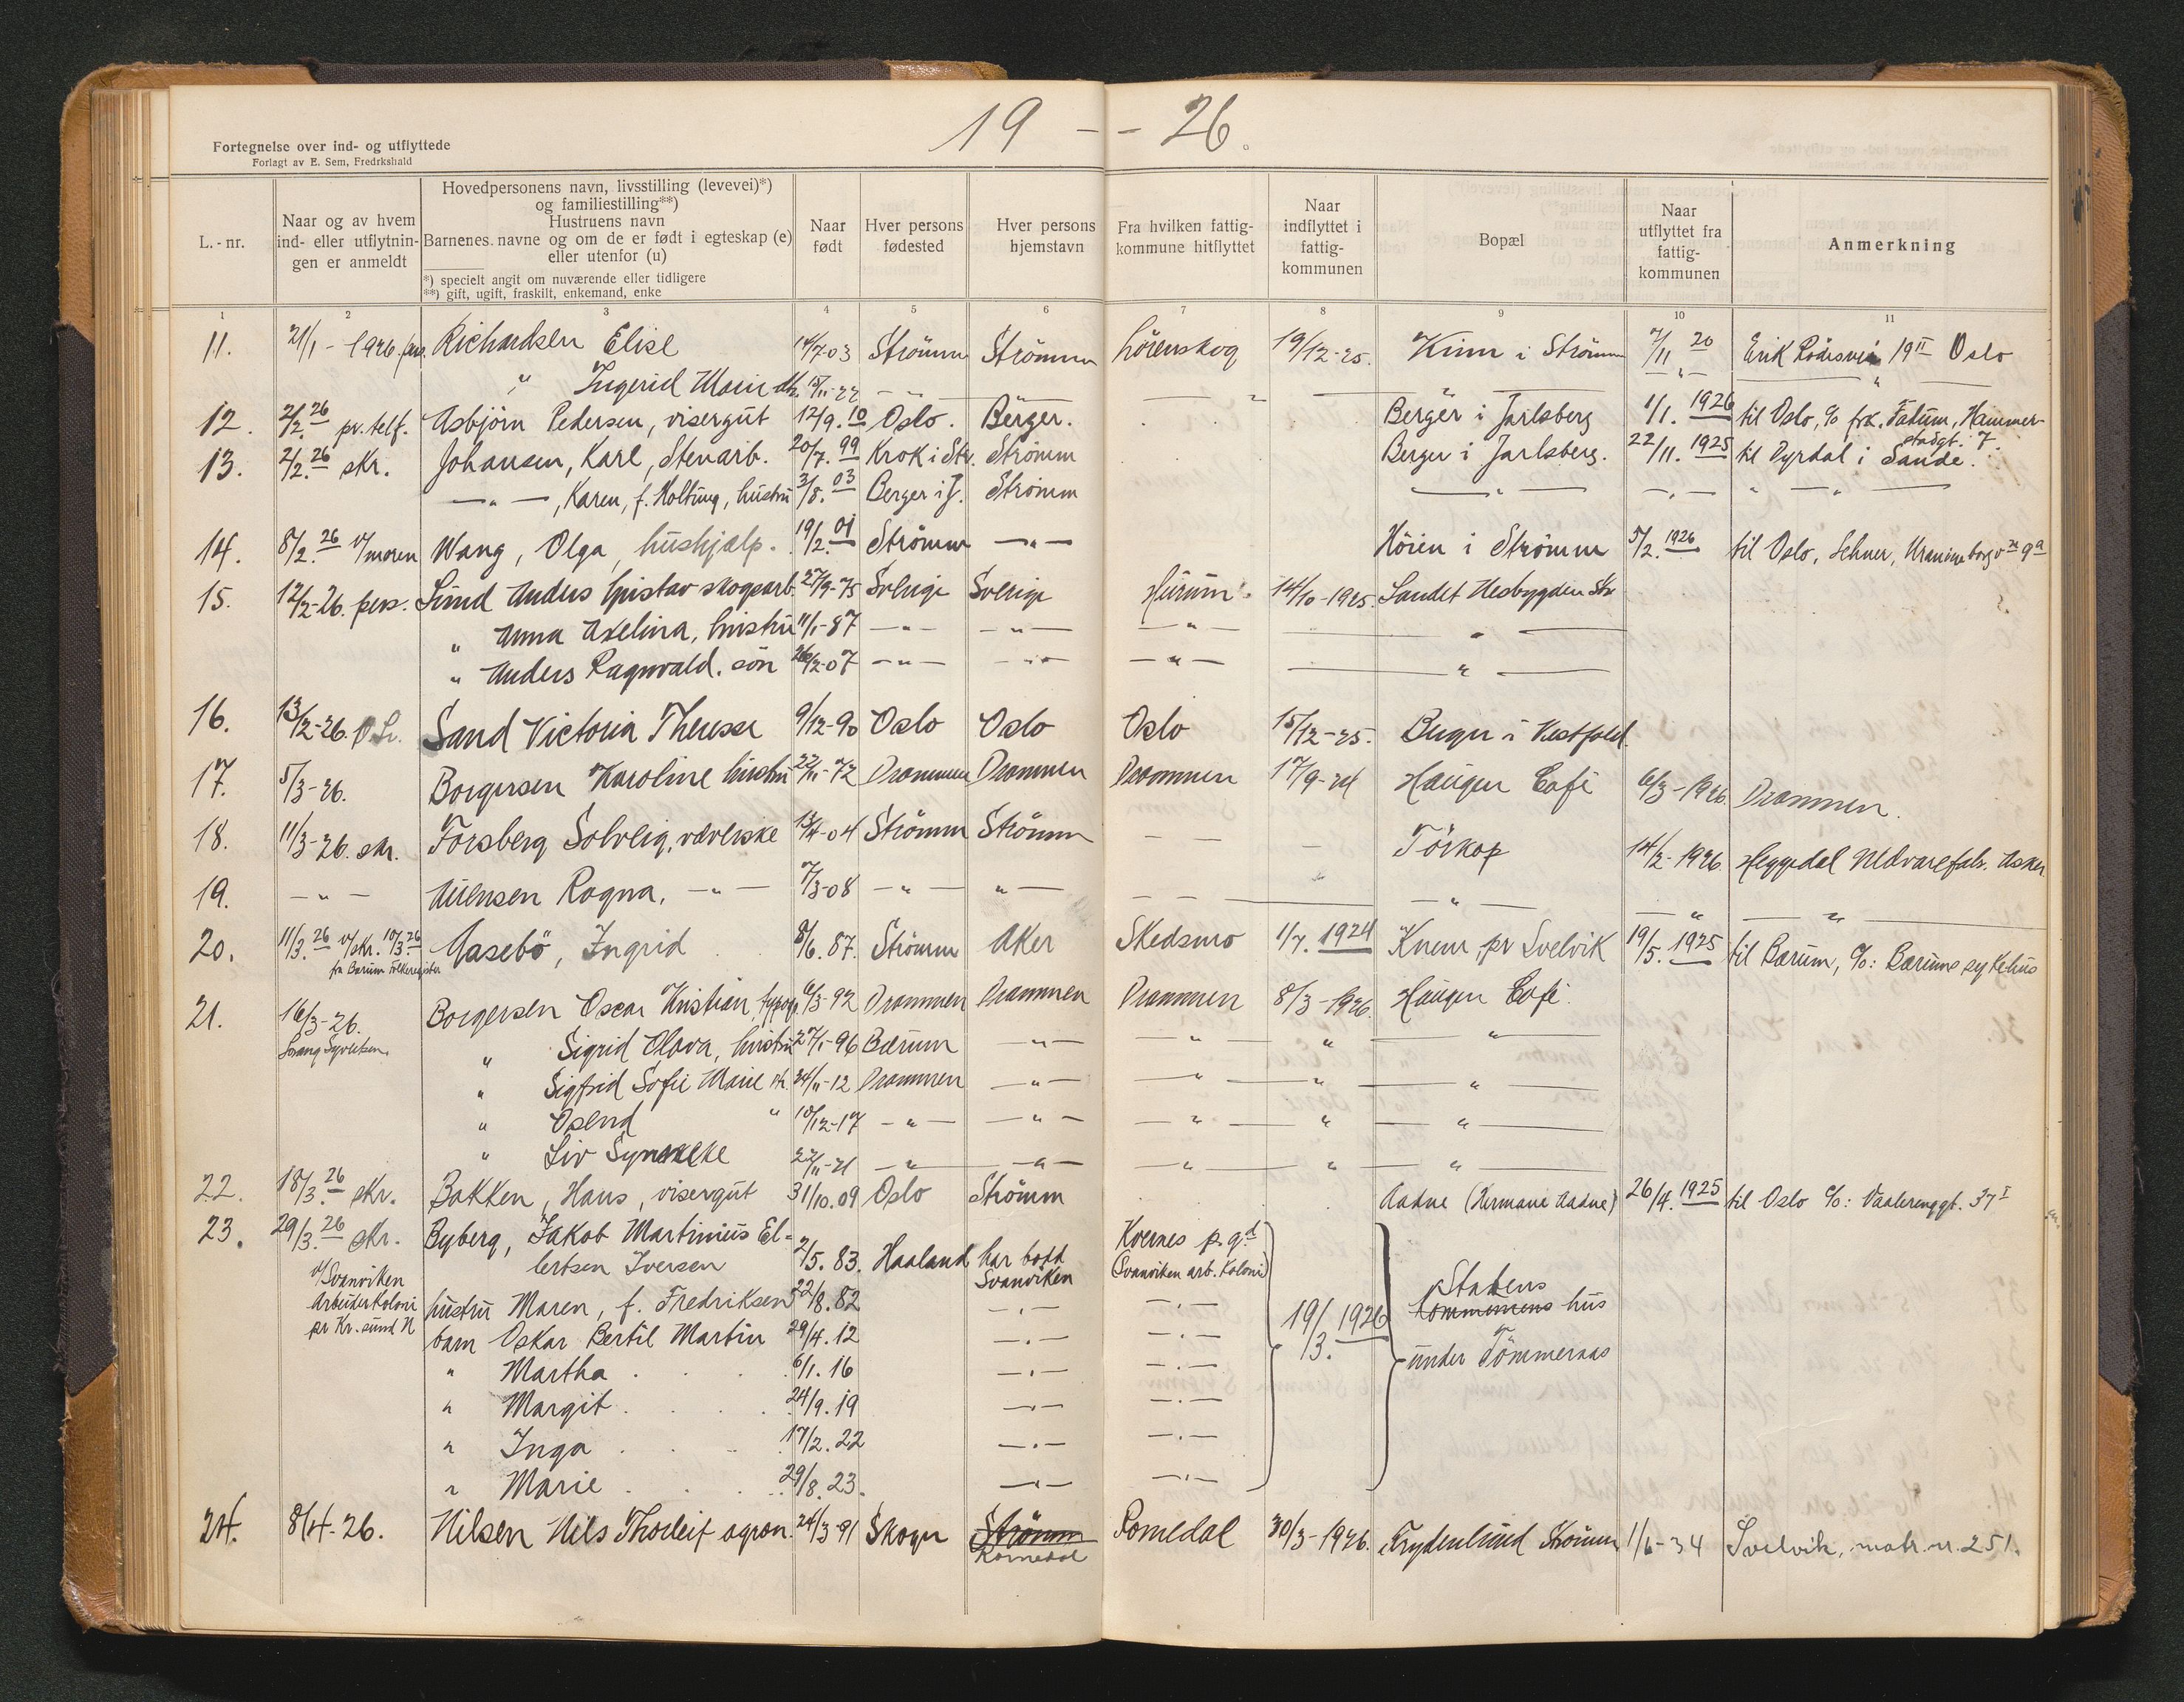 19 -- 26.
Fortegnelse over ind- og utflyttede
Forlagt av E. Sem, Fredrkshald
L.-nr.
Naar og av hvem ind- eller utflytnin- gen er anmeldt
Hovedpersonens navn, livsstilling (levevei)*)
og familiestilling**)
Hustruens navn
Barnenes navne og om de er født i egteskap (e)
eller utenfor (u)
*) specielt angit om nuværende eller tidligere
**) gift, ugift, fraskilt, enkemand, enke
Naar født
Hver persons fødested
Hver persons hjemstavn
Fra hvilken fattig- kommune hitflyttet
Naar indflyttet i fattig- kommunen
Bopæl
Naar utflyttet fra fattig- kommunen
Anmerkning
1 2 3 4 5 6 7 8 9 10 11
11. 21/1 - 1926 Richardsen Elise 14/7-03 Strömm Strömm Lörenskog 19/12-25. Kinn i Strömm 7/11 20 Erik 19 II Oslo
" Ingerid Marie 15/11-22 - " -
12. 2/2. 26 pr. telf. Asbjörn Pedersen, visergut 12/9. 10 Oslo. Berger. Berger i Jarlsberg 1/1. 1926 til Oslo, c/o frk. Fatum, Hammer-
stadgt. 7.
13. 2/2. 26 skr. Johansen, Karl, Stenarb. 20/7. 99 Krok i Str. Strömm Berger i Jarlsberg. 22/11. 1925 til Dyrdal i Sande.
— " —, Karen, f. Holtung, hustru 3/8. 03 Berger i J. Strömm — " — — " — — " —
14. 8/2. 26 v/moren Wang, Olga, hushjælp. 19/2. 01 Strömm — " — Höien i Strömm 5/2. 1926 til Oslo, Lehner, Uranienborgv 9a
15. 12/2-26. pers. Lund Anders Gustav skogsarb. 27/9-75 Sverige Sverige Hurum. 14/10-1925. Sandet Nesbygden Str
" Anna Axelina, hustru 11/1-87 — " — — " — — " — "
" Anders Ragnvald. sön 26/2-07 — " — — " — — " — "
16. 13/2-26. Sand Victoria Therese 9/12-90 Oslo Oslo Oslo 15/12-25. Berger i Vestfold.
17. 5/3-26. Borgersen Karoline hustru 22/11-72 Drammen Drammen Drammen 17/9-24 Haugen Café 6/3-1926. Drammen.
18. 11/3-26. skr. Forsberg Solveig, væverske 13/4-04 Strömm Strömm — — — Törkop 14/2-1926. Heggedal Uldvarefabr. Asker
19. — " — Ragna, — " — 7/3-08 — " — " — — " — — " — — " —
20. 11/3. 26 v/skr. 10/3. 26 Aasebö, Ingrid 8/6. 87. Strömm Aker Skedsmo 1/7. 1924 Knem, pr Svelvik 19/5. 1925 til Bærum, c/o: Bærums sykehus
fra Bærum folkeregister
21. 16/3-26. Borgersen Oscar Kristian, typogr. 6/3-92 Drammen Drammen Drammen 8/3-1926. Haugen Café.
" Sigrid Olava, hustru 27/1-96 Bærum — " — — " — " "
" Sigfrid Sofie Marie 24/11-12 Drammen — " — — " — " "
" Osend " 10/12-17 — " — — " — — " — " "
" Liv 22/11-21 — " — — " — — " — " "
22. 18/3. 26 skr. Bakken, Hans, visergut 31/10. 09 Oslo Strömm Aadne (Hermane Aadne) 26/4. 1925 til Oslo c/o: Vaalerenggt. 37 I
23. 29/3. 26 skr. Byberg, Jakob Martinius El-
lertsen Iversen 2/5. 83. Haaland har bodd Svanviken Kvernes p. gd (Svanviken arb. Koloni)
v/Svanviken
Arbeiderkoloni
pr Kr.sund N
hustru Maren, f. Fredriksen 22/8. 82 — " — — " —
barn Oskar Bertil Martin 29/4. 12 — " — — " — 19/3. 1926 Statens kommunens hus under Tömmeraas
" Martha 6/1. 16 — " — — " —
" Margit 24/9. 19 — " — — " —
" Inga 17/2. 22 — " — — " —
" Marie 29/8. 23. — " — — " —
24. 8/4-26. Nilsen Nils Thorleif agron. 24/3-91 Skoger Strömm Romedal Romedal 30/3-1926. Frydenlund Strömm 1/6-34 Svelvik, matr. nr. 251.